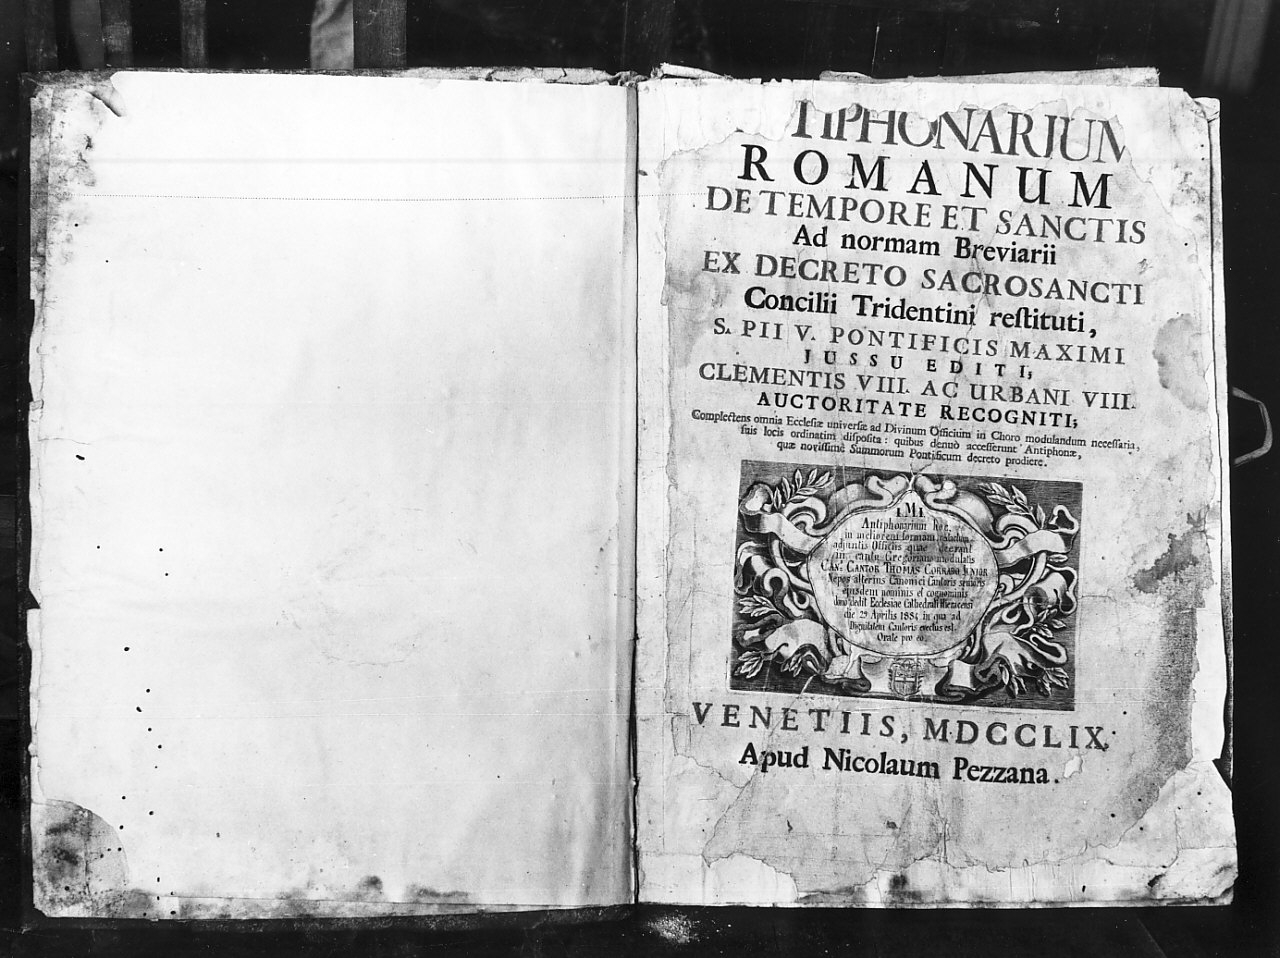 TIPHONARIUM
ROMANUM
DE TEMPORE ET SANCTIS
Ad normam Breviarii
EX DECRETO SACROSANCTI
Concilii Tridentini reſtituti,
S. PII V. PONTIFICIS MAXIMI
JUSSU EDITI;
CLEMENTIS VIII. AC URBANI VIII.
AUCTORITATE RECOGNITI;
Complectens omnia Eccleſiæ univerſæ ad Divinum Officium in Choro modulandum neceſſaria,
ſuis locis ordinatim diſpoſita: quibus denuò acceſſerunt Antiphonæ,
quæ noviſſimè Summorum Pontificum decreto prodiere.
I.M.I.
Antiphonarium hoc
in meliorem formam
adjunctis Officiis quae deerant
in cantu Gregoriano modulatis
CAN. CANTOR THOMAS CORRADO JUNIOR
Nepos alterius Canonici Cantoris senioris
ejusdem nominis et cognominis
dono dedit Ecclesiae Cathedrali
die 29 Aprilis 1884 in qua ad
Dignitatem Cantoris evectus est.
Orate pro eo.
VENETIIS, MDCCLIX.
Apud Nicolaum Pezzana.